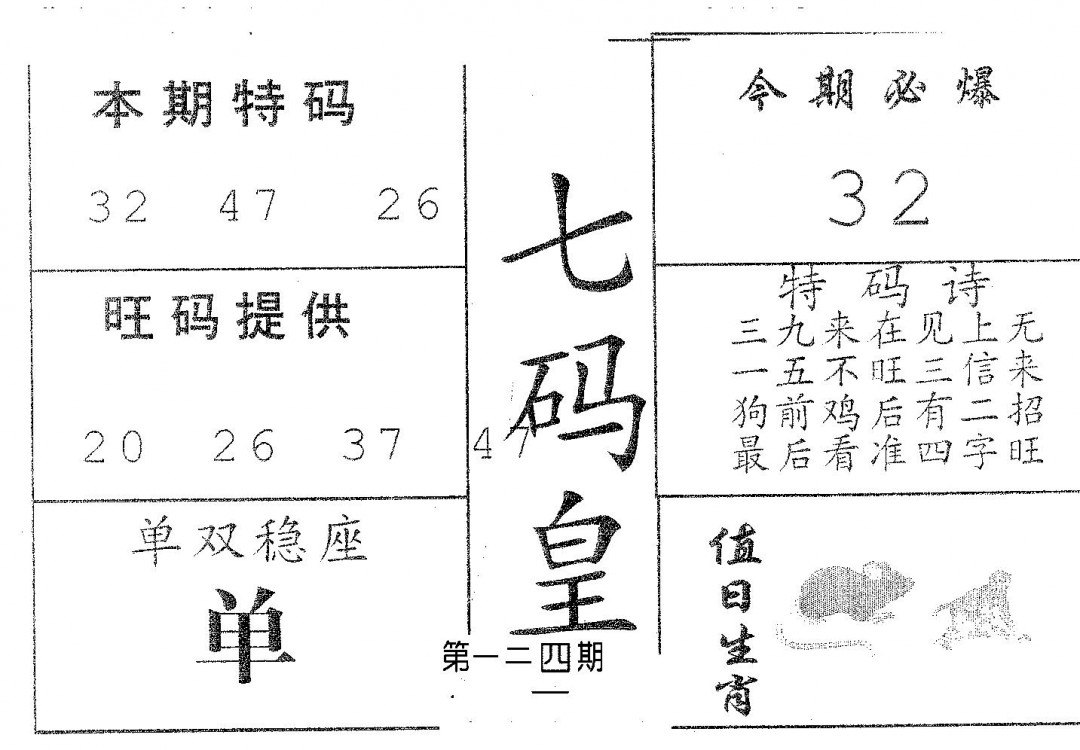 本期特码
32 47 26
旺码提供
20 26 37 47
单双稳座
单
七码皇
第一二四期
今期必爆
32
特码诗
三九来在见上无
一五不旺三信来
狗前鸡后有二招
最后看准四字旺
值日生肖